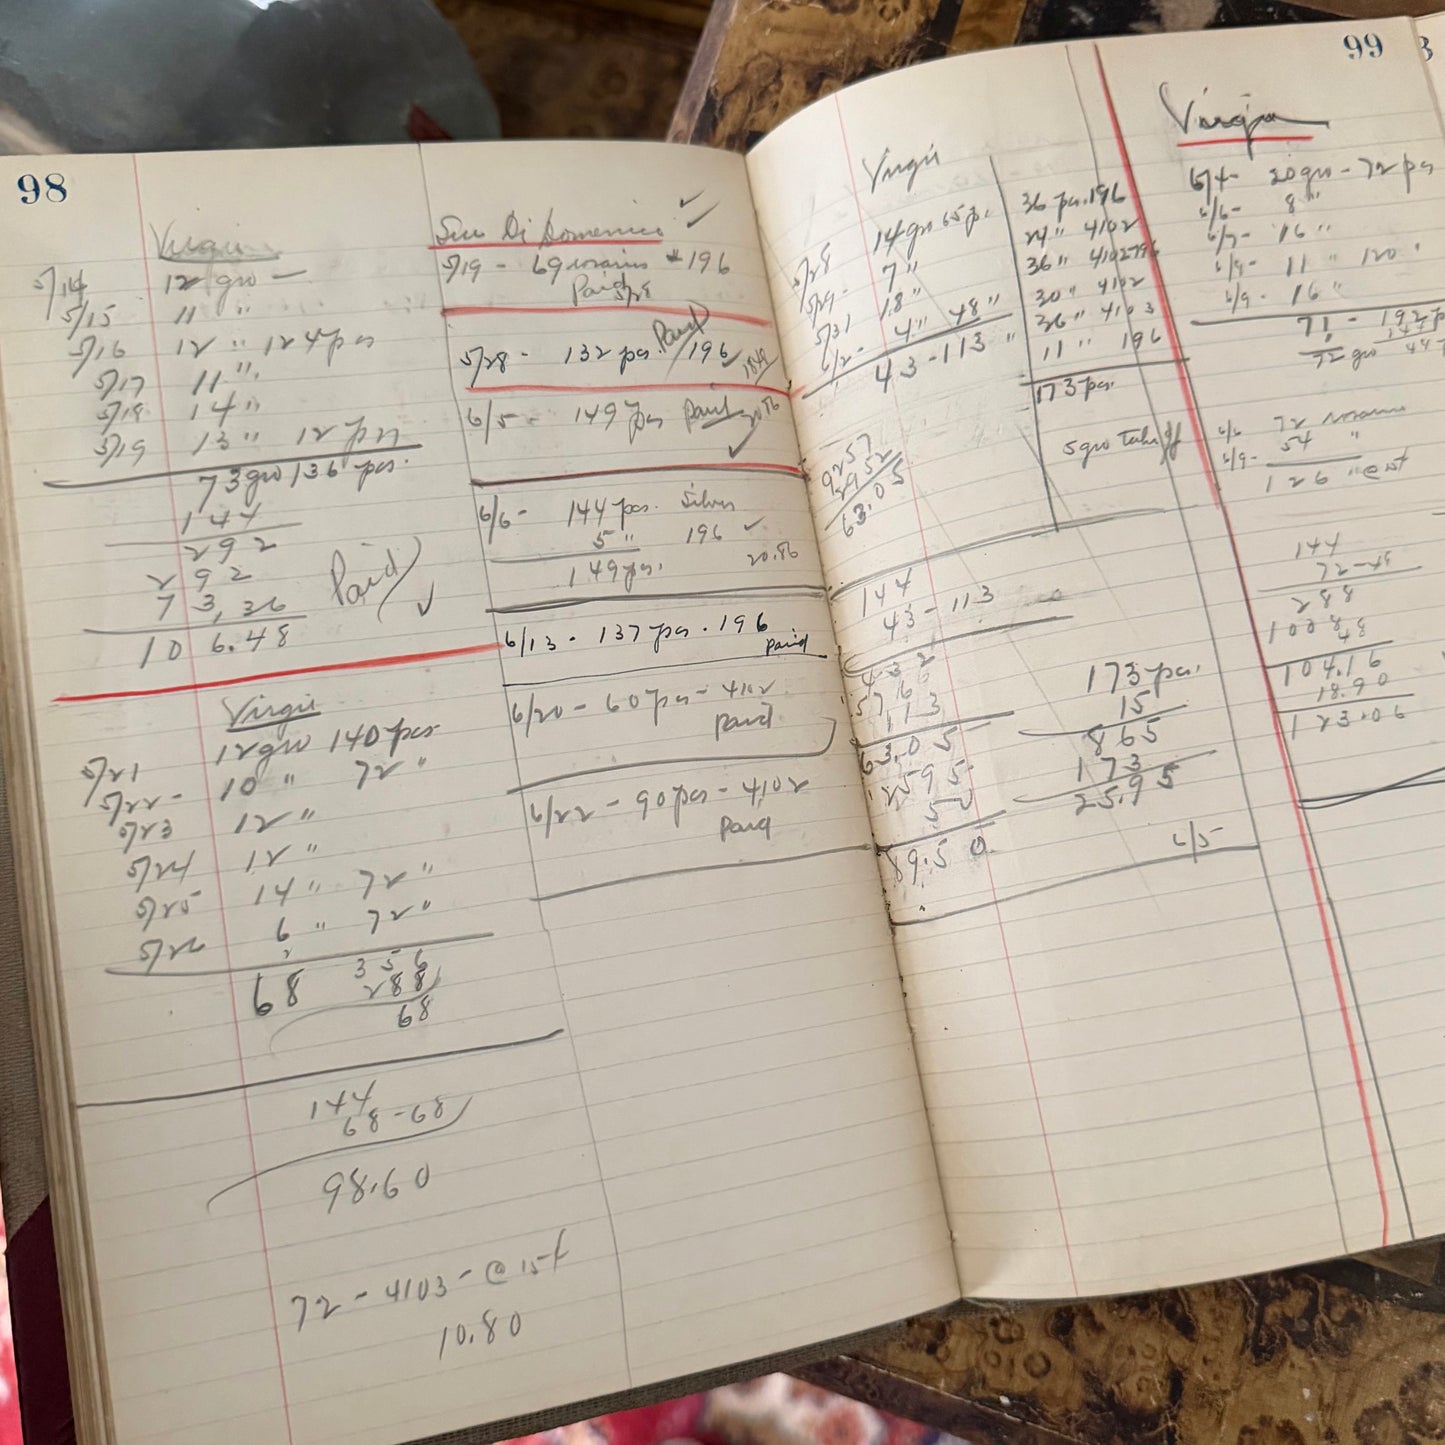 98
Virgin
5/14 12 gro —
5/15 11 "
5/16 12 " 124 pcs
5/17 11 "
5/18 14 "
5/19 13 " 12 pcs
73 gro 136 pcs.
144
292
292
73,36
106.48
Paid
Virgin
5/21 12 gro 140 pcs
5/22 - 10 " 72 "
5/23 12 "
5/24 12 "
5/25 14 " 72 "
5/26 6 " 72 "
68 356
288
68
144
68-68
98.60
72 - 4103 - @ 15¢
10.80
Di Domenico
5/19 - 69 rosaries #196
Paid 5/28
5/28 - 132 pcs. 196 Paid
6/5 - 149 pcs Paid
6/6 - 144 pcs. Silver
5 " 196
149 pcs. 20.86
6/13 - 137 pcs - 196
paid
6/20 - 60 pcs - 4102
paid
6/22 - 90 pcs - 4102
paid
99
Virgin
5/28 14 gro 65 pc
5/29 - 7 "
5/31 18 "
6/2 - 4 " 48 "
43 - 113 "
36 pcs. 196
24 " 4102
36 " 4102
30 " 4102
36 " 4103
11 " 196
173 pcs.
5 gro take off
9257
2952
63.05
144
43 - 113
432
576
113
63.05
2595
50
89.50
173 pcs.
15
865
173
25.95
6/5
Virgin
6/4 - 20 gro - 72 pcs
6/6 - 8 "
6/7 - 16 "
6/9 - 11 " 120
6/9 - 16 "
71 - 192 p
72 gro
6/6 72 rosaries
6/9 - 54 "
126 " @ 15¢
144
72 - 48
288
1008
48
104.16
18.90
123.06